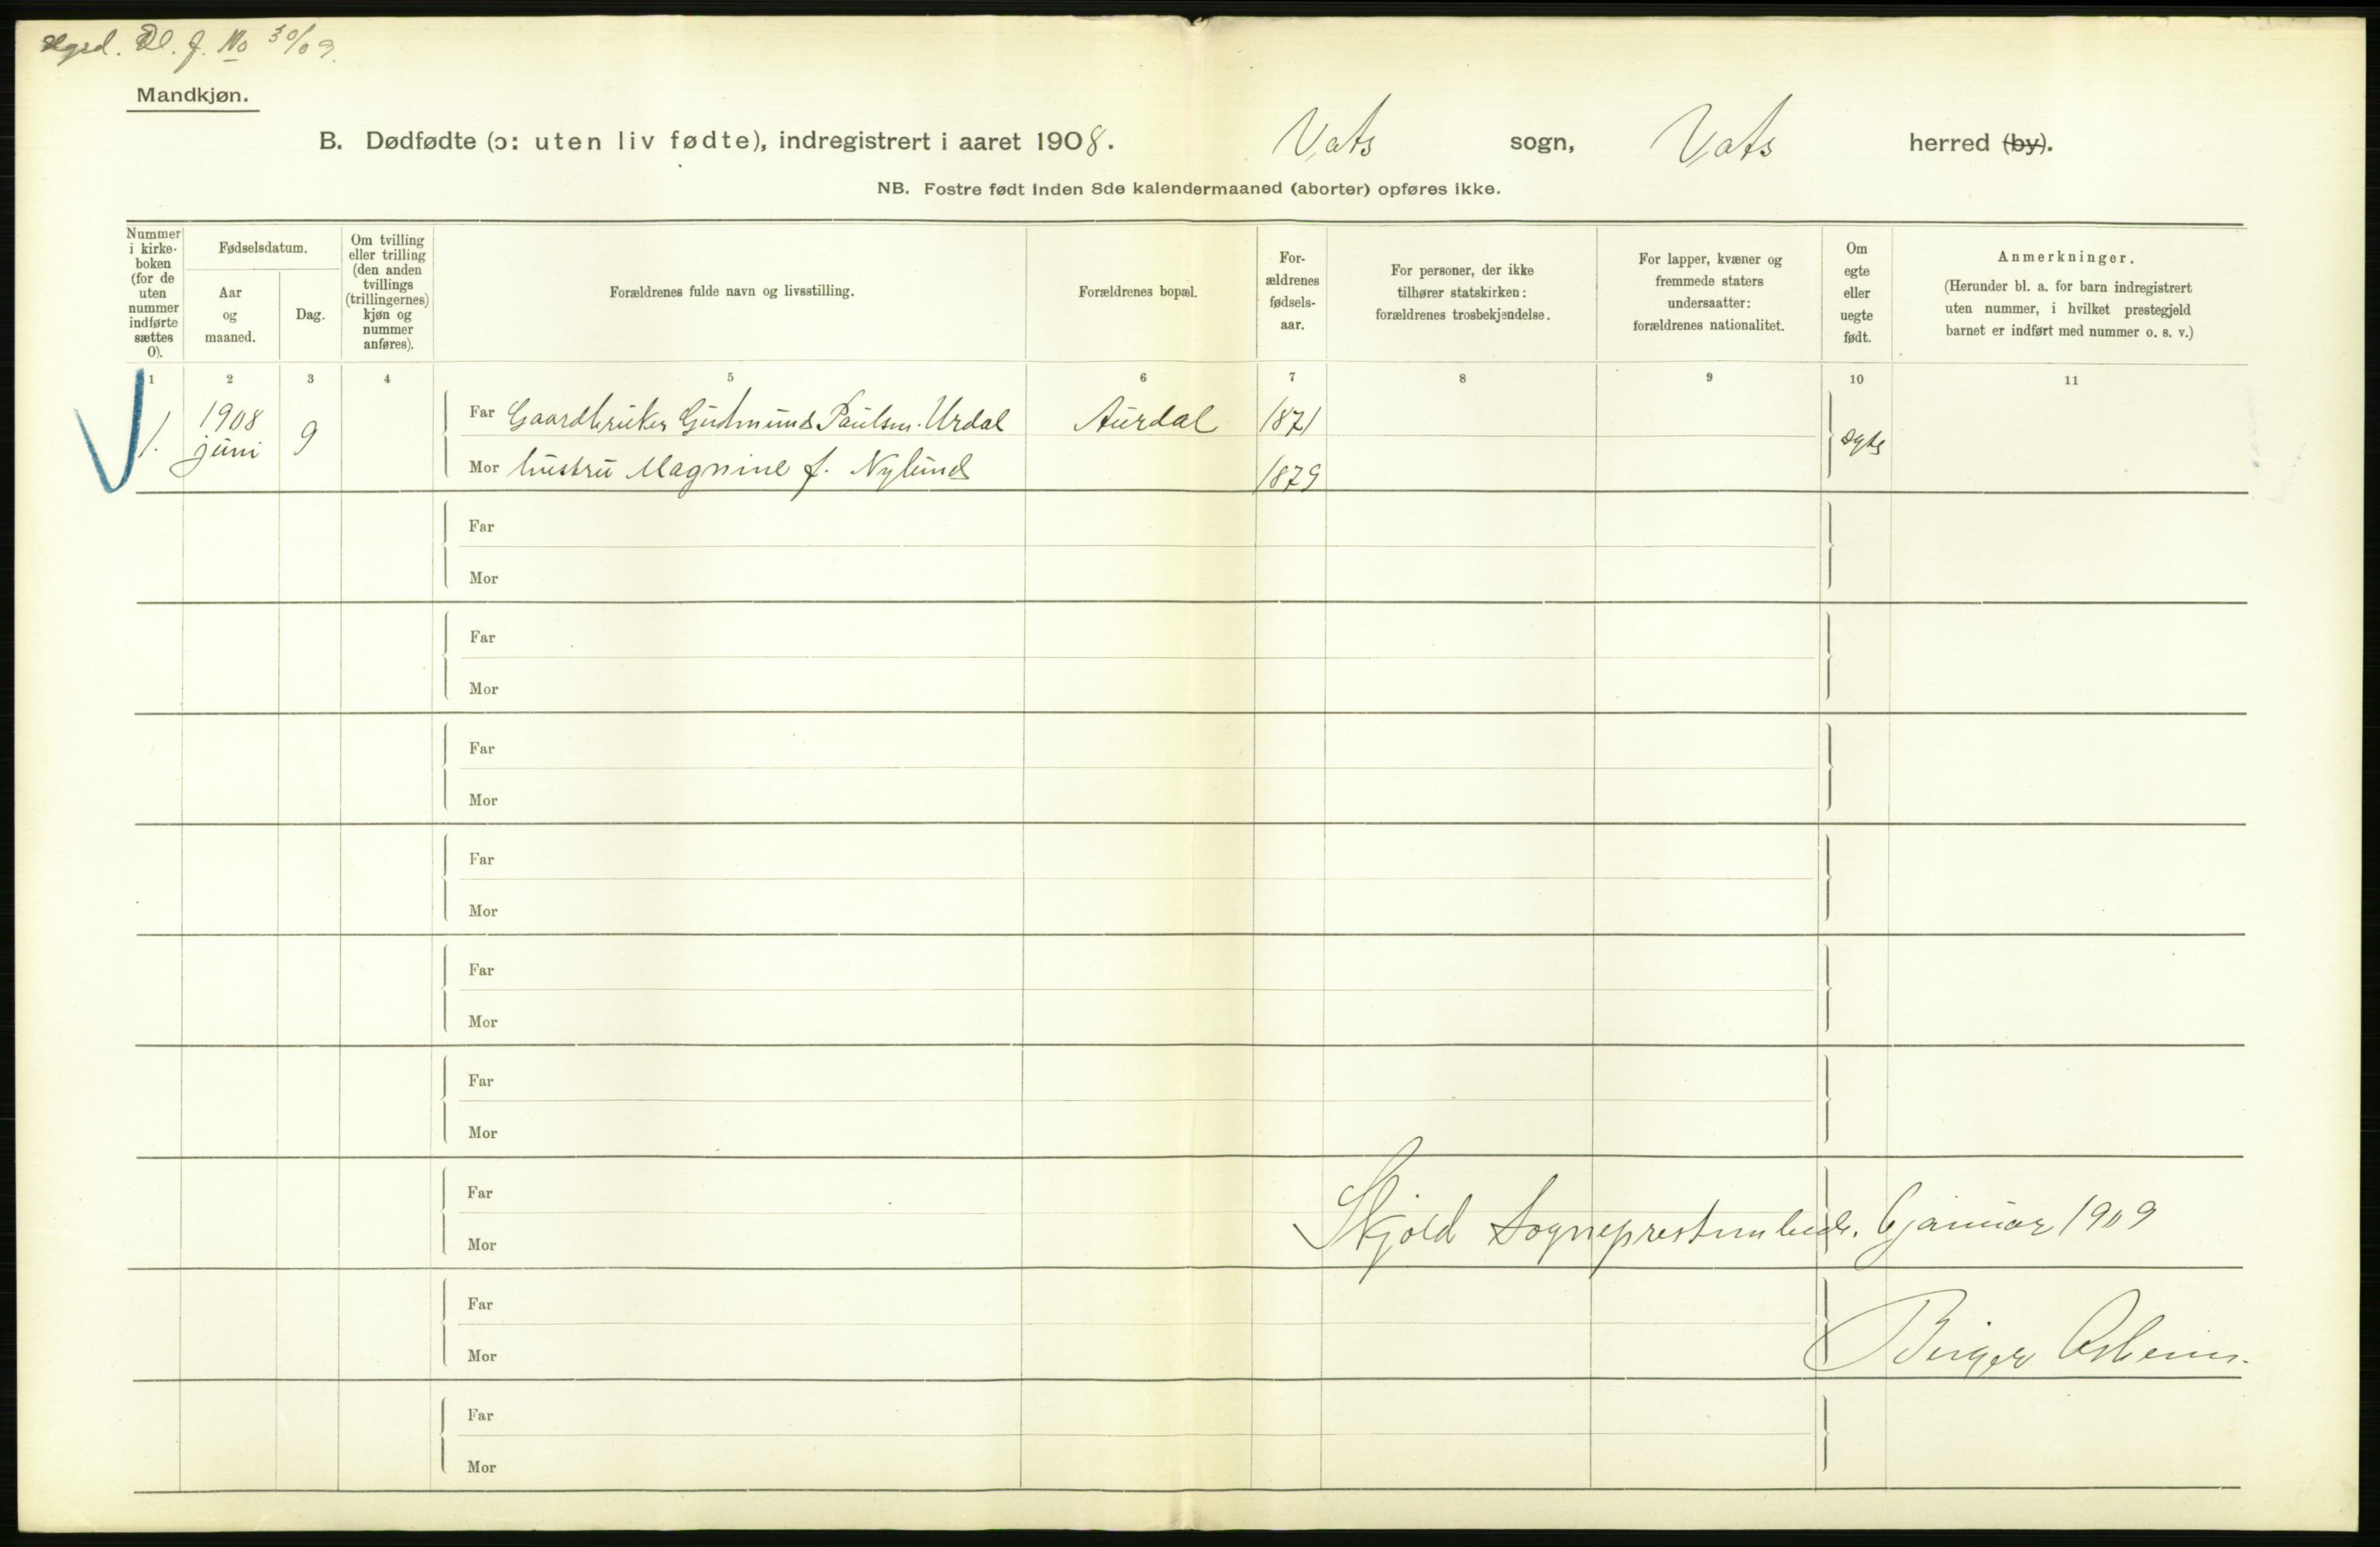 Dl. J. No 30/09.
Mandkjøn.
B. Dødfødte (ɔ: uten liv fødte), indregistrert i aaret 1908. Vats sogn, Vats herred (by).
NB. Fostre født inden 8de kalendermaaned (aborter) opføres ikke.
Nummer
i kirke-
boken
(for de
uten
nummer
indførte
sættes
0).
Fødselsdatum.
Aar
og
maaned.
Dag.
Om tvilling
eller trilling
(den anden
tvillings
(trillingernes)
kjøn og
nummer
anføres).
Forældrenes fulde navn og livsstilling.
Forældrenes bopæl.
For-
ældrenes
fødsels-
aar.
For personer, der ikke
tilhører statskirken:
forældrenes trosbekjendelse.
For lapper, kvæner og
fremmede staters
undersaatter:
forældrenes nationalitet.
Om
egte
eller
uegte
født.
Anmerkninger.
(Herunder bl. a. for barn indregistrert
uten nummer, i hvilket prestegjeld
barnet er indført med nummer o. s. v.)
1 2 3 4 5 6 7 8 9 10 11
1. 1908 juni 9
Far Gaardbruker Gudmund Paulsen Urdal Aurdal 1871
Mor hustru Magnine f. Nylund 1879
egte
Far
Mor
Far
Mor
Far
Mor
Far
Mor
Far
Mor
Far
Mor
Far
Mor
Skjold Sogneprestembede. 6 januar 1909
Far
Mor
Birger
Far
Mor